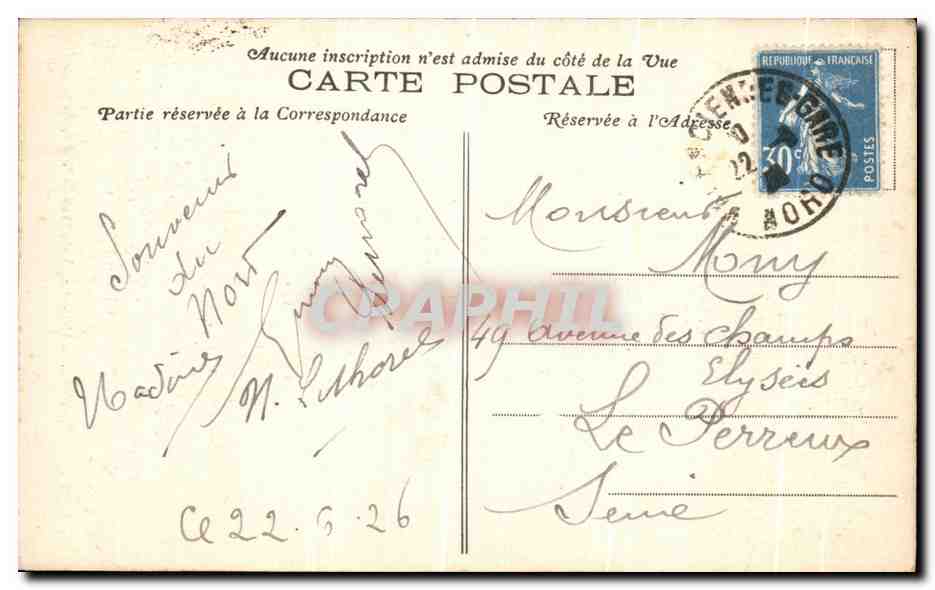 Aucune inscription n'est admise du côté de la Vue
CARTE POSTALE
Partie réservée à la Correspondance
Réservée à l'Adresse
REPUBLIQUE FRANÇAISE
30c
POSTES
GARE
22
NORD
Souvenir
du
Nord
Simon
N. Lethorel
Ce 22.6.26
CPAPHIL
Monsieur
Mony
49 avenue des champs
Elyseis
Le Perreux
Seine